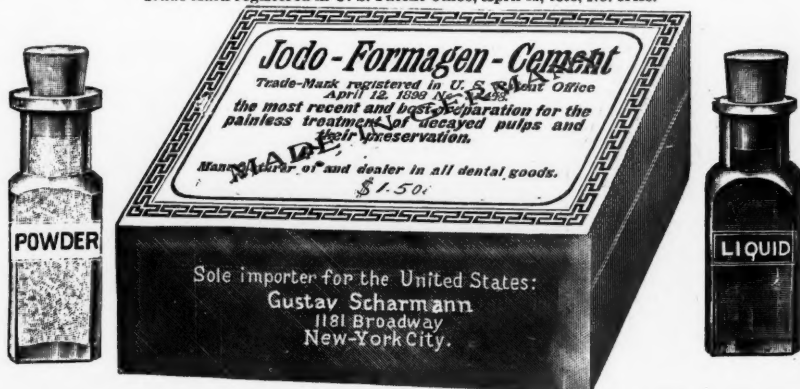 Jodo-Formagen-Cement
Trade-Mark registered in U. S. Patent Office
April 12, 1898 No.
the most recent and best preparation for the
painless treatment of decayed pulps and
their preservation.
MADE IN GERMANY
Manufacturer of and dealer in all dental goods.
$1.50
POWDER
LIQUID
Sole importer for the United States:
Gustav Scharmann
1181 Broadway
New-York City.